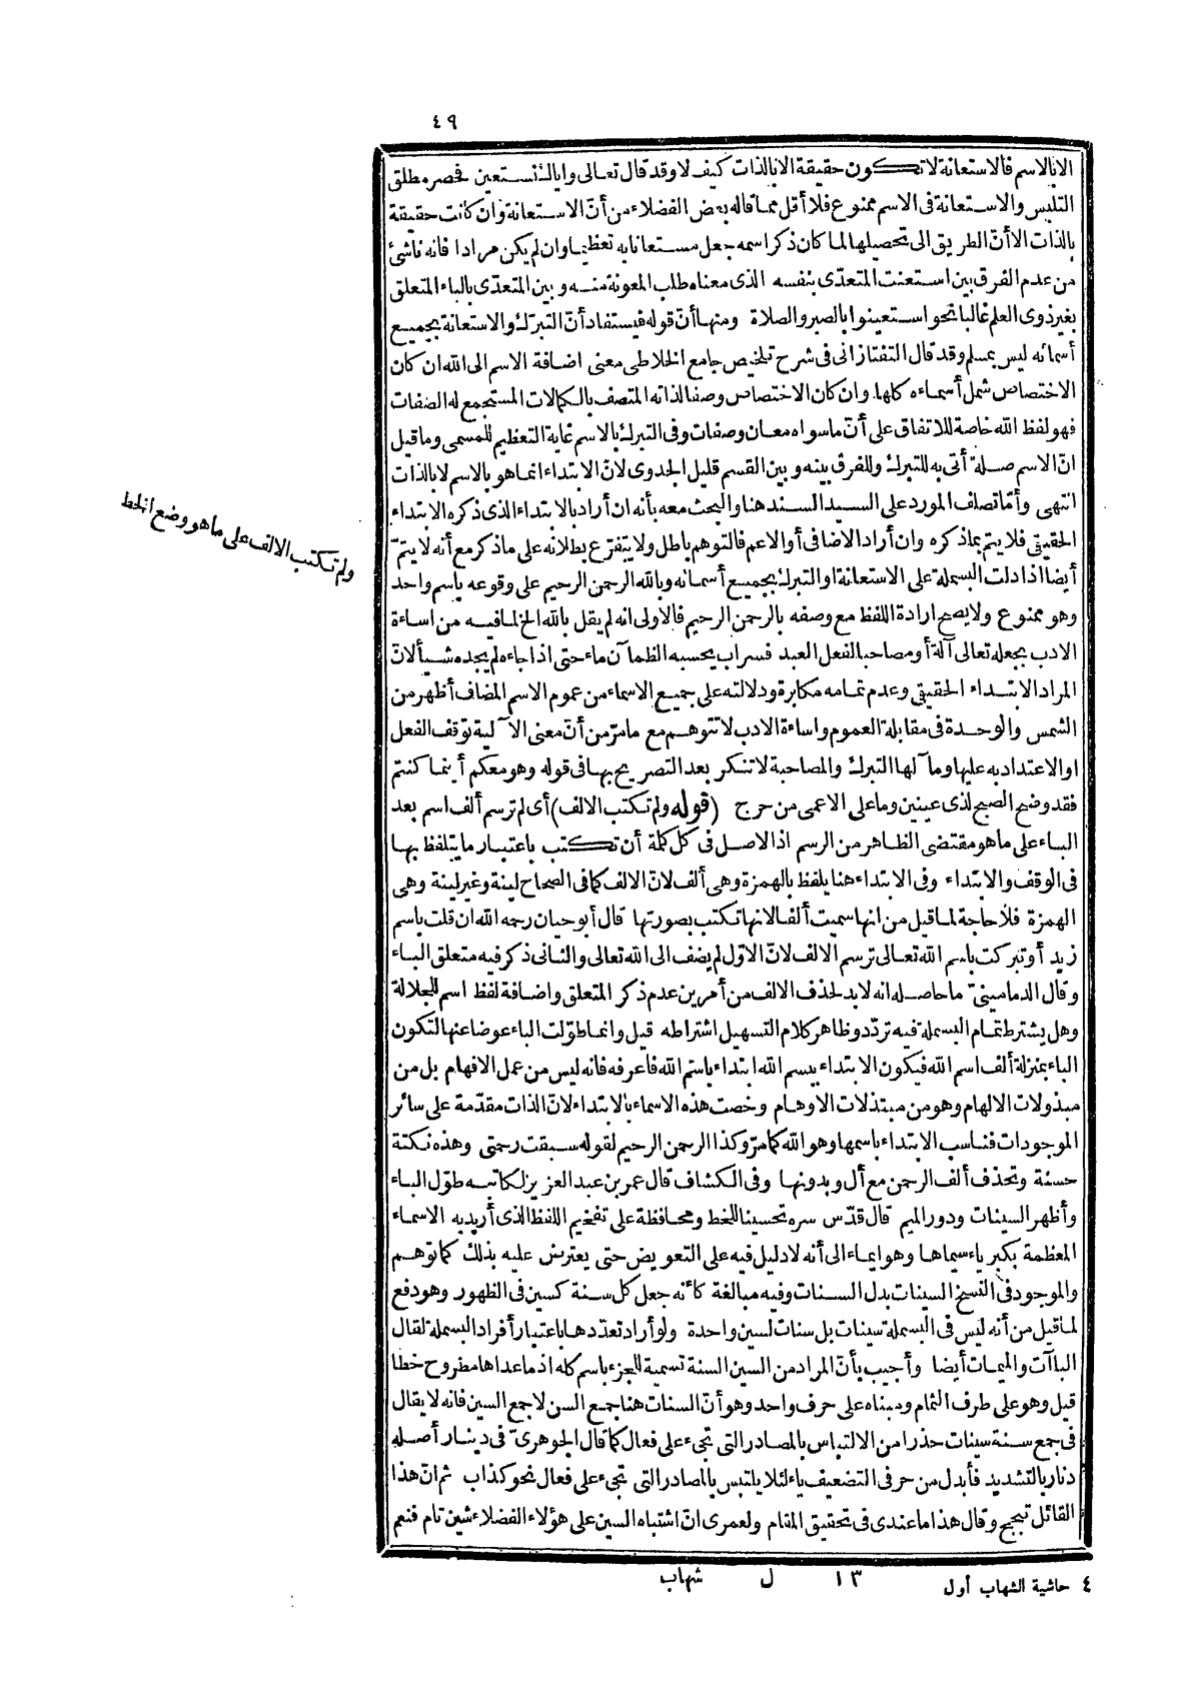 ٤٩
الا بالاسم فالاستعانة لا تكون حقيقة الا بالذات كيف لا وقد قال تعالى واياك نستعين فحصر مطلق
التلبس والاستعانة فى الاسم ممنوع فلا أقل مما قاله بعض الفضلاء من أنّ الاستعانة وان كانت حقيقة
بالذات الا أنّ الطريق الى تحصيلها لما كان ذكر اسمه جعل مستعانا به تعظيما وان لم يكن مرادا فانه ناشئ
من عدم الفرق بين استعنت المتعدّى بنفسه الذى معناه طلب المعونة منه وبين المتعدّى بالباء المتعلق
بغير ذوى العلم غالبا نحو استعينوا بالصبر والصلاة ومنها أنّ قوله فيستفاد أنّ التبرّك والاستعانة بجميع
أسمائه ليس بمسلم وقد قال التفتازانى فى شرح تلخيص جامع الخلاطى معنى اضافة الاسم الى الله ان كان
الاختصاص شمل أسماءه كلها وان كان الاختصاص وصفا لذاته المتصف بالكمالات المستجمع له الصفات
فهو لفظ الله خاصة للاتفاق على أنّ ما سواه معان وصفات وفى التبرك بالاسم غاية التعظيم للمسمى وما قيل
انّ الاسم صلة أتى به للتبرك وللفرق بينه وبين القسم قليل الجدوى لانّ الابتداء انما هو بالاسم لا بالذات
انتهى وأمّا تصلف المورد على السيد السند هنا والبحث معه بأنه ان أراد بالابتداء الذى ذكره الابتداء
الحقيقىّ فلا يتم بما ذكره وان أراد الاضافى أو الاعم فالتوهم باطل ولا يتفرّع بطلانه على ما ذكر مع أنه لا يتمّ
أيضا اذا دلت البسملة على الاستعانة او التبرك بجميع أسمائه وبالله الرحمن الرحيم على وقوعه باسم واحد
وهو ممنوع ولا يصح ارادة اللفظ مع وصفه بالرحمن الرحيم فالاولى انه لم يقل بالله الخ لما فيه من اساءة
الادب بجعله تعالى آلة أو مصاحبا لفعل العبد فسراب يحسبه الظمآن ماء حتى اذا جاءه لم يجده شيأ لانّ
المراد الابتداء الحقيقىّ وعدم تمامه مكابرة ودلالته على جميع الاسماء من عموم الاسم المضاف أظهر من
الشمس والوحدة فى مقابلة العموم واساءة الادب لا تتوهم مع ما مرّ من أنّ معنى الآلية توقف الفعل
او الاعتداد به عليها وما آلها التبرك والمصاحبة لا تنكر بعد التصريح بها فى قوله وهو معكم أينما كنتم
فقد وضح الصبح لذى عينين وما على الاعمى من حرج (قوله ولم تكتب الالف) أى لم ترسم ألف اسم بعد
الباء على ما هو مقتضى الظاهر من الرسم اذ الاصل فى كل كلمة أن تكتب باعتبار ما يتلفظ بها
فى الوقف والابتداء وفى الابتداء هنا يلفظ بالهمزة وهى ألف لانّ الالف كما فى الصحاح لينة وغير لينة وهى
الهمزة فلا حاجة لما قيل من انها سميت ألفا لانها تكتب بصورتها قال أبو حيان رحمه الله ان قلت باسم
زيد أو تبركت باسم الله تعالى ترسم الالف لانّ الاوّل لم يضف الى الله تعالى والثانى ذكر فيه متعلق الباء
وقال الدمامينىّ ما حاصله انه لا بد لحذف الالف من أمرين عدم ذكر المتعلق واضافة لفظ اسم للجلالة
وهل يشترط تمام البسملة فيه تردّد وظاهر كلام التسهيل اشتراطه قيل وانما طوّلت الباء عوضا عنها لتكون
الباء بمنزلة ألف اسم الله فيكون الابتداء ببسم الله ابتداء باسم الله فاعرفه فانه ليس من عمل الافهام بل من
مبذولات الالهام وهو من مبتذلات الاوهام وخصت هذه الاسماء بالابتداء لانّ الذات مقدّمة على سائر
الموجودات فناسب الابتداء باسمها وهو الله كما مرّ وكذا الرحمن الرحيم لقوله سبقت رحمتى وهذه نكتة
حسنة وتحذف ألف الرحمن مع أل وبدونها وفى الكشاف قال عمر بن عبد العزيز لكاتبه طوّل الباء
وأظهر السينات ودور الميم قال قدّس سره تحسينا للخط ومحافظة على تفخيم اللفظ الذى أريد به الاسماء
المعظمة بكبرياء سيماها وهو ايماء الى أنه لا دليل فيه على التعويض حتى يعترض عليه بذلك كما توهم
والموجود فى النسخ السينات بدل السنات وفيه مبالغة كأنه جعل كل سنة كسين فى الظهور وهو دفع
لما قيل من أنه ليس فى البسملة سينات بل سنات لسين واحدة ولو أراد تعدّدها باعتبار أفراد البسملة لقال
الباآت والميمات أيضا وأجيب بأنّ المراد من السين السنة تسمية للجزء باسم كله اذ ما عداها مطروح خطا
قيل وهو على طرف الثمام ومبناه على حرف واحد وهو أنّ السنات هنا جمع السن لا جمع السين فانه لا يقال
فى جمع سنة سينات حذرا من الالتباس بالمصادر التى تجىء على فعال كما قال الجوهرىّ فى دينار أصله
دنار بالتشديد فأبدل من حرفى التضعيف ياء لئلا يلتبس بالمصادر التى تجىء على فعال نحو كذاب ثم انّ هذا
القائل تبجح وقال هذا ما عندى فى تحقيق المقام ولعمرى انّ اشتباه السين على هؤلاء الفضلاء شين تام فنعم
ولم تكتب الالف على ما هو وضع الخط
٤ حاشية الشهاب أول
١٣ ل شهاب